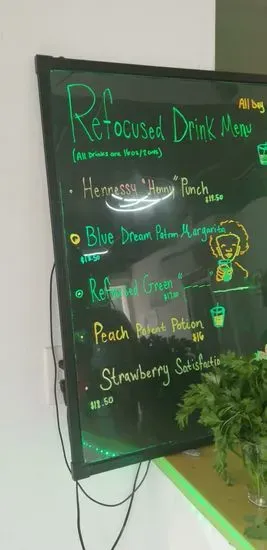 All Day
Refocused Drink Menu
(All Drinks are 16oz/2oz)
Hennessy "Henny" Punch
$18.50
Blue Dream Patron Margarita
$18.50
Refocused Green
$17.00
Peach Patent Potion
$16
Strawberry Satisfactio
$18.50